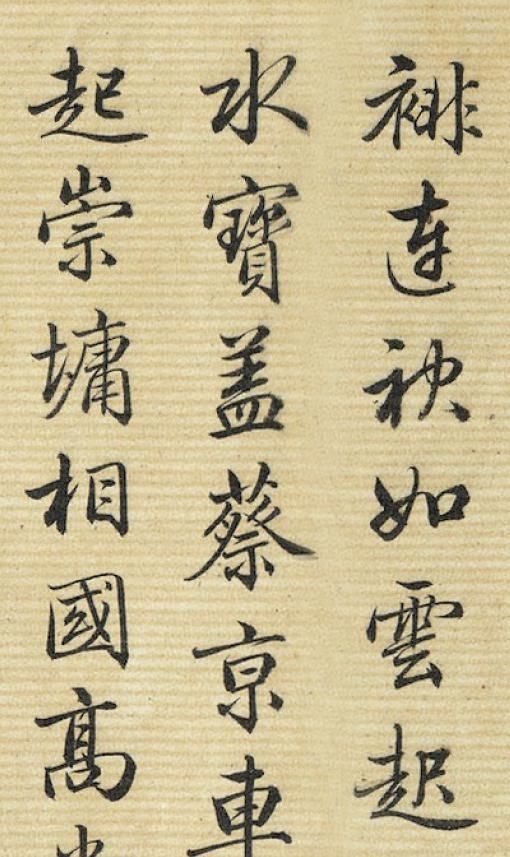 裶連袂如雲起
水寶盖蔡京車
起崇墉相國高